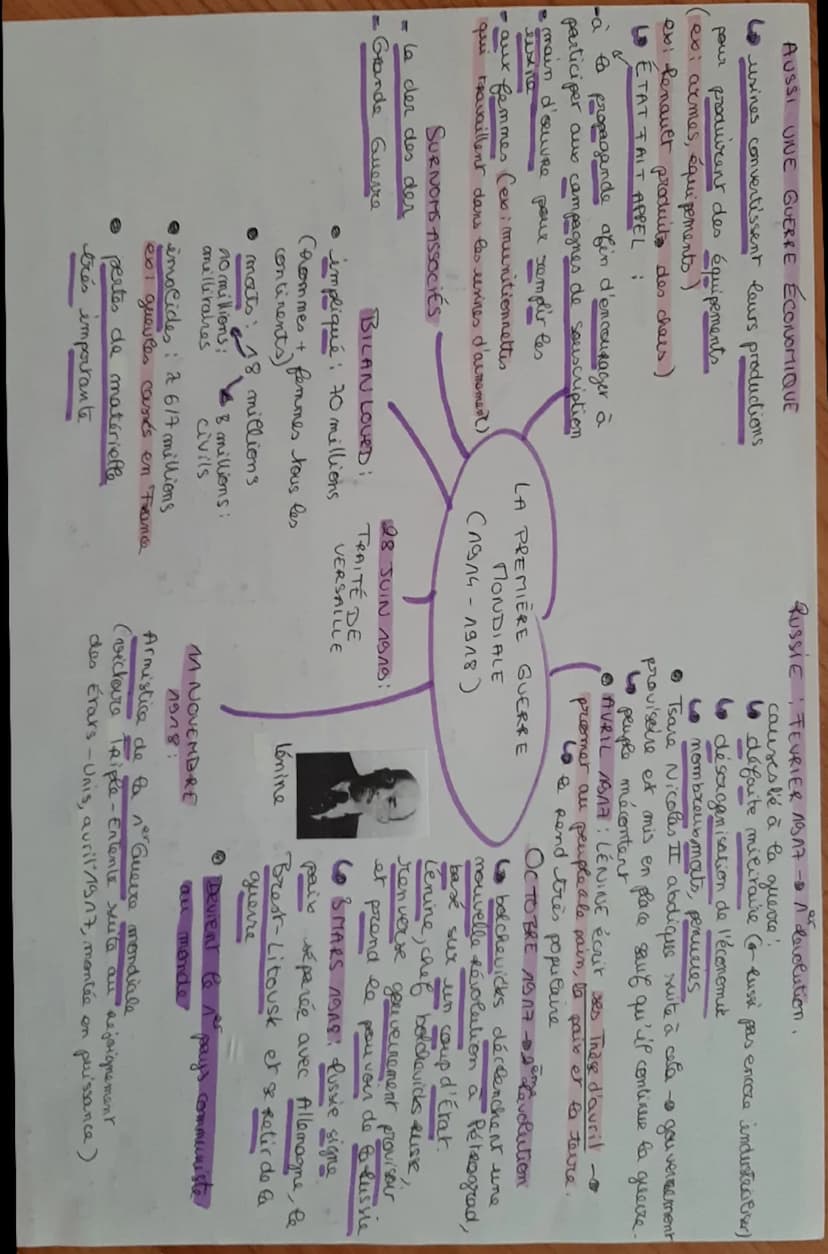 AUSSI UNE GUERRE ÉCONOMIQUE
↳ usines convertissent leurs productions
pour produirent des équipements
(ex: armes, équipements)
ex: Renault produits des chars)
↳ ÉTAT FAIT APPEL :
- à la propagande afin d'encourager à
participer aux campagnes de souscription
• main d'œuvre pour remplir les
usine
• aux femmes (ex: munitionnettes
qui travaillent dans les usines d'armement)
SURNOMS ASSOCIÉS
= la der des der
= Grande Guerre
BILAN LOURD :
• impliqué : 70 millions
(hommes + femmes tous les
continents)
• morts : 18 millions
10 millions : militaires
8 millions : civils
• invalides : ≈ 6/7 millions
ex: gueules cassés en France
• pertes de matérielle
très importante
LA PREMIÈRE GUERRE
MONDIALE
(1914 - 1918)
28 JUIN 1919 :
TRAITÉ DE
VERSAILLE
11 NOVEMBRE
1918 :
Armistice de la 1er Guerre mondiale
(victoire Triple-Entente suite au rejoignement
des États-Unis, avril 1917, montée en puissance)
RUSSIE : FEVRIER 1917 → 1er révolution.
causes lié à la guerre :
↳ défaite militaire (← Russi pas encore industrialiser)
↳ désorganisation de l'économie
↳ nombreux morts, pénuries
• Tsare Nicolas II abdique suite à cela → gouvernement
provisoire et mis en place sauf qu'il continue la guerre.
↳ peuple mécontent
• AVRIL 1917 : LÉNINE écrit ses Thèse d'avril →
promet au peuple le pain, la paix et la terre.
↳ le rend très populaire
OCTOBRE 1917 → 2ème révolution
↳ bolchevicks déclenchent une
nouvelle révolution à Pétrograd,
basé sur un coup d'État.
Lénine, chef bolchevicks russe,
renverse gouvernement provisoir
et prend le pouvoir de la Russie
↳ 3 MARS 1918 : Russie signe
paix séparée avec Allemagne, le
Brest-Litovsk et se retir de la
guerre
• Devient le 1er pays communiste
au monde
Lénine